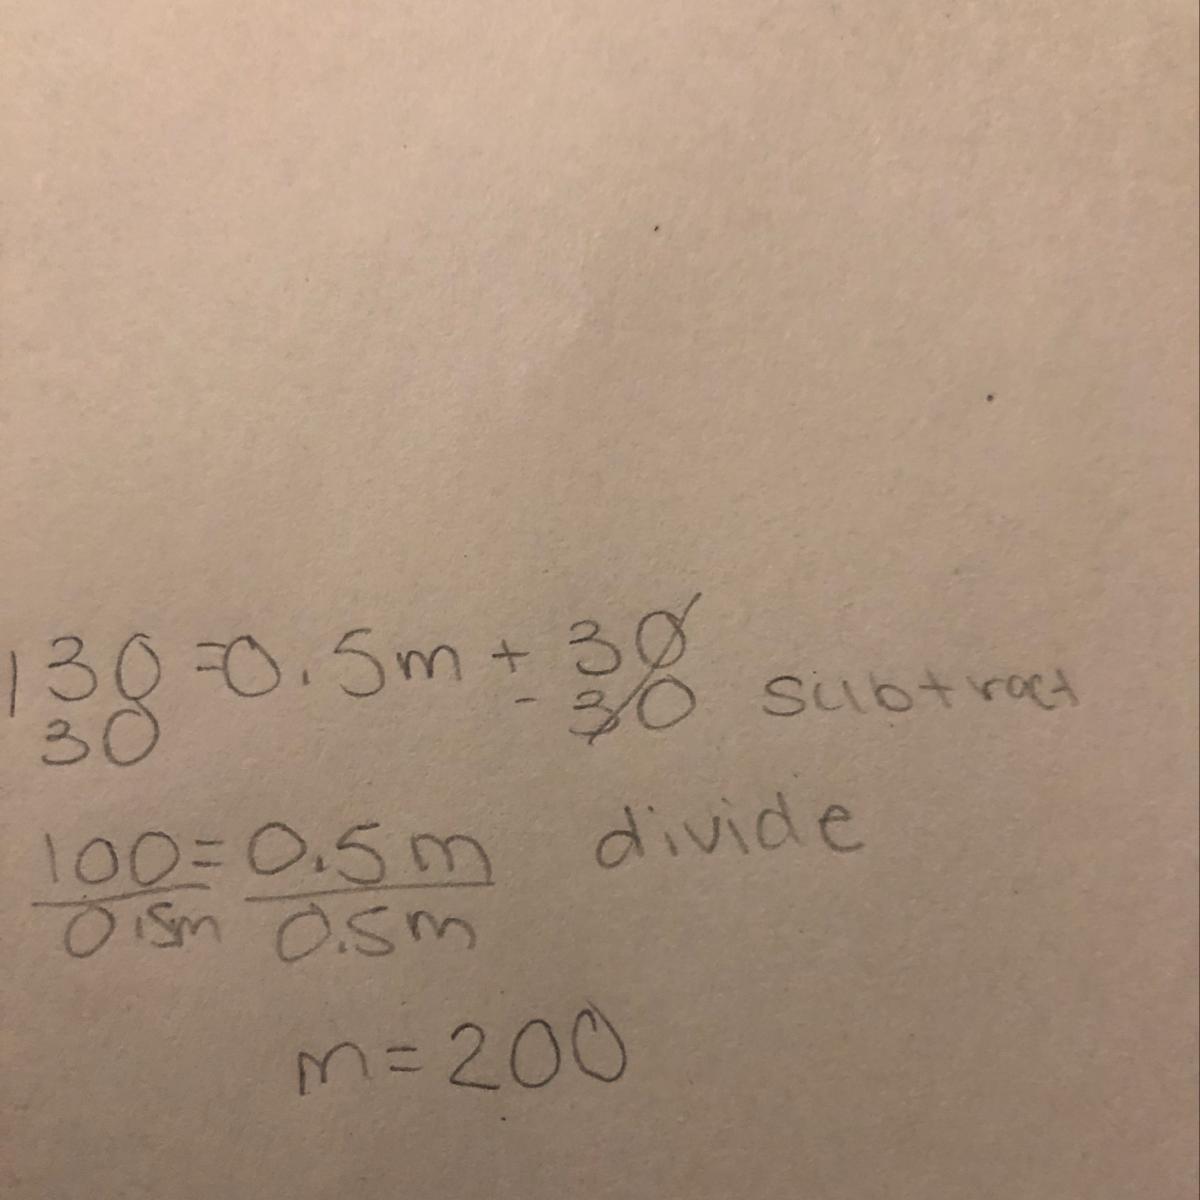 130=0.5m + 30
30 - 30 subtract
100=0.5m divide
0.5m 0.5m
m=200